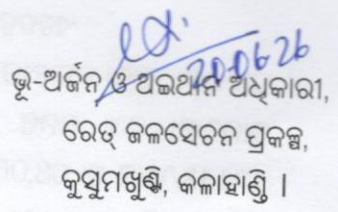 20.06.26
ଭୂ-ଅର୍ଜନ ଓ ଥଇଥାନ ଅଧିକାରୀ,
ରେତ୍ ଜଳସେଚନ ପ୍ରକଳ୍ପ,
କୁସୁମଖୁଣ୍ଟି, କଳାହାଣ୍ଡି ।